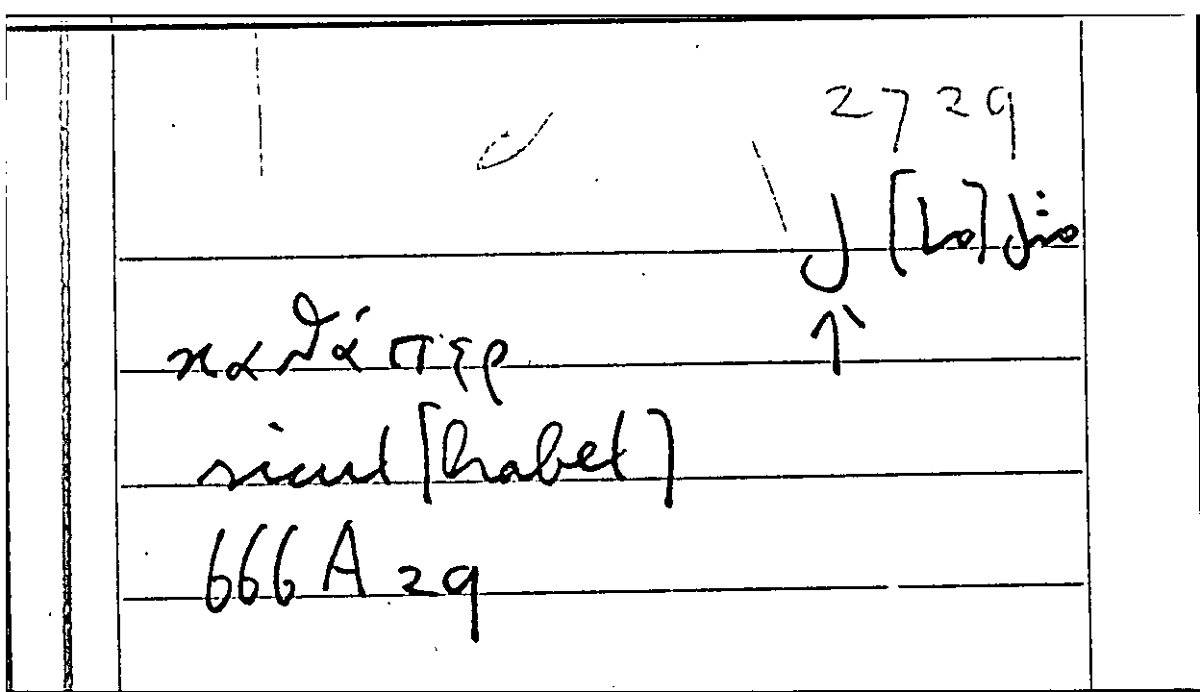 2729
مثل [ما] ل
↑
καθάπερ
sicut [habet]
666 A 29